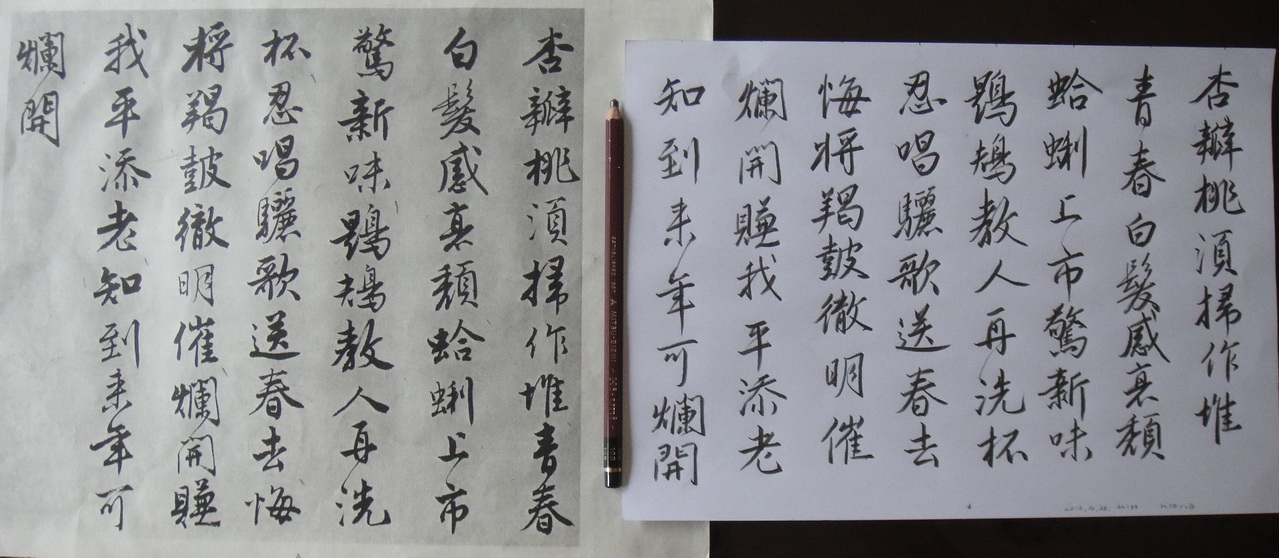 杏瓣桃須掃作堆青春
白髮感衰頹蛤蜊上市
驚新味鶗鴂教人再洗
杯忍唱驪歌送春去悔
將羯鼓徹明催爛開賺
我平添老知到来年可
爛開
杏瓣桃須掃作堆
青春白髮感衰頹
蛤蜊上市驚新味
鶗鴂教人再洗杯
忍唱驪歌送春去
悔將羯鼓徹明催
爛開賺我平添老
知到来年可爛開